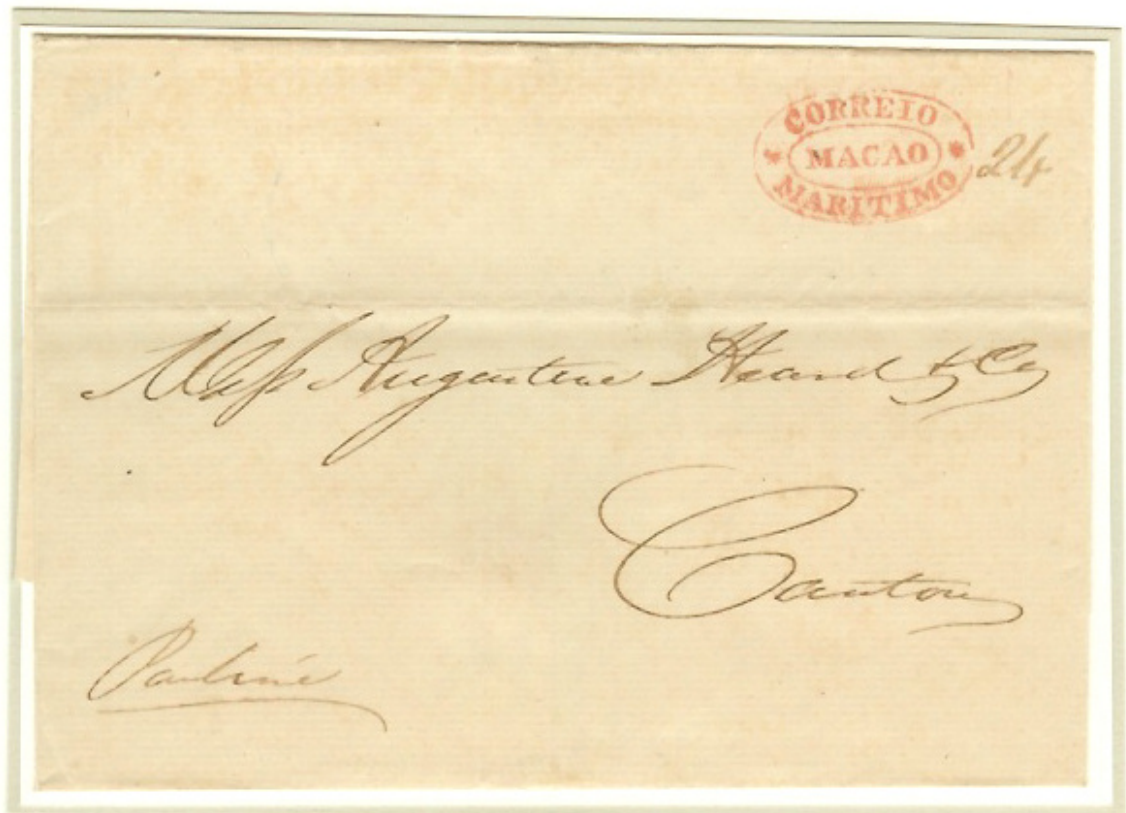 CORREIO
MACAO
MARITIMO
24
Mess Augustine Heard & Co
Canton
Pauline